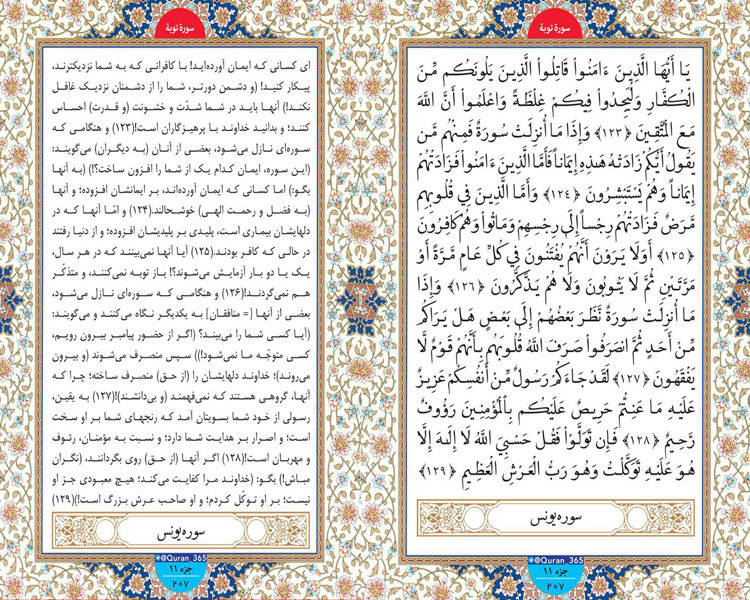 سورهٔ توبة
يَا أَيُّهَا الَّذِينَ ءَامَنُواْ قَاتِلُواْ الَّذِينَ يَلُونَكُم مِّنَ
الْكُفَّارِ وَلْيَجِدُواْ فِيكُمْ غِلْظَةً وَاعْلَمُواْ أَنَّ اللَّهَ
مَعَ الْمُتَّقِينَ ﴿١٢٣﴾ وَإِذَا مَا أُنزِلَتْ سُورَةٌ فَمِنْهُم مَّن
يَقُولُ أَيُّكُمْ زَادَتْهُ هَذِهِ إِيمَاناً فَأَمَّا الَّذِينَ ءَامَنُواْ فَزَادَتْهُمْ
إِيمَاناً وَهُمْ يَسْتَبْشِرُونَ ﴿١٢٤﴾ وَأَمَّا الَّذِينَ فِي قُلُوبِهِم
مَّرَضٌ فَزَادَتْهُمْ رِجْساً إِلَى رِجْسِهِمْ وَمَاتُواْ وَهُمْ كَافِرُونَ
﴿١٢٥﴾ أَوَلَا يَرَوْنَ أَنَّهُمْ يُفْتَنُونَ فِي كُلِّ عَامٍ مَّرَّةً أَوْ
مَرَّتَيْنِ ثُمَّ لَا يَتُوبُونَ وَلَا هُمْ يَذَّكَّرُونَ ﴿١٢٦﴾ وَإِذَا
مَا أُنزِلَتْ سُورَةٌ نَّظَرَ بَعْضُهُمْ إِلَى بَعْضٍ هَلْ يَرَاكُم
مِّنْ أَحَدٍ ثُمَّ انصَرَفُواْ صَرَفَ اللَّهُ قُلُوبَهُم بِأَنَّهُمْ قَوْمٌ لَّا
يَفْقَهُونَ ﴿١٢٧﴾ لَقَدْ جَاءَكُمْ رَسُولٌ مِّنْ أَنفُسِكُمْ عَزِيزٌ
عَلَيْهِ مَا عَنِتُّمْ حَرِيصٌ عَلَيْكُم بِالْمُؤْمِنِينَ رَؤُوفٌ
رَّحِيمٌ ﴿١٢٨﴾ فَإِن تَوَلَّوْاْ فَقُلْ حَسْبِيَ اللَّهُ لَا إِلَهَ إِلَّا
هُوَ عَلَيْهِ تَوَكَّلْتُ وَهُوَ رَبُّ الْعَرْشِ الْعَظِيمِ ﴿١٢٩﴾
سوره یونس
@Quran_365
جزء ١١
٢٠٧
سورهٔ توبة
ای کسانی که ایمان آورده‌اید! با کافرانی که به شما نزدیکترند،
پیکار کنید! (و دشمن دورتر، شما را از دشمنان نزدیک غافل
نکند!) آنها باید در شما شدّت و خشونت (و قدرت) احساس
کنند؛ و بدانید خداوند با پرهیزگاران است!(۱۲۳) و هنگامی که
سوره‌ای نازل می‌شود، بعضی از آنان (به دیگران) می‌گویند:
(این سوره، ایمان کدام یک از شما را افزون ساخت؟!) (به آنها
بگو:) اما کسانی که ایمان آورده‌اند، بر ایمانشان افزوده؛ و آنها
(به فضل و رحمت الهی) خوشحالند.(۱۲۴) و امّا آنها که در
دلهایشان بیماری است، پلیدی بر پلیدیشان افزوده؛ و از دنیا رفتند
در حالی که کافر بودند.(۱۲۵) آیا آنها نمی‌بینند که در هر سال،
یک یا دو بار آزمایش می‌شوند؟! باز توبه نمی‌کنند، و متذکّر
هم نمی‌گردند!(۱۲۶) و هنگامی که سوره‌ای نازل می‌شود،
بعضی از آنها [= منافقان] به یکدیگر نگاه می‌کنند و می‌گویند:
(آیا کسی شما را می‌بیند؟ (اگر از حضور پیامبر بیرون رویم،
کسی متوجّه ما نمی‌شود!)) سپس منصرف می‌شوند (و بیرون
می‌روند)؛ خداوند دلهایشان را (از حق) منصرف ساخته؛ چرا که
آنها، گروهی هستند که نمی‌فهمند (و بی‌دانشند)!(۱۲۷) به یقین،
رسولی از خود شما بسویتان آمد که رنجهای شما بر او سخت
است؛ و اصرار بر هدایت شما دارد؛ و نسبت به مؤمنان، رئوف
و مهربان است!(۱۲۸) اگر آنها (از حق) روی بگردانند، (نگران
مباش!) بگو: (خداوند مرا کفایت می‌کند؛ هیچ معبودی جز او
نیست؛ بر او توکّل کردم؛ و او صاحب عرش بزرگ است!)(۱۲۹)
سوره یونس
@Quran_365
جزء ١١
٢٠٧